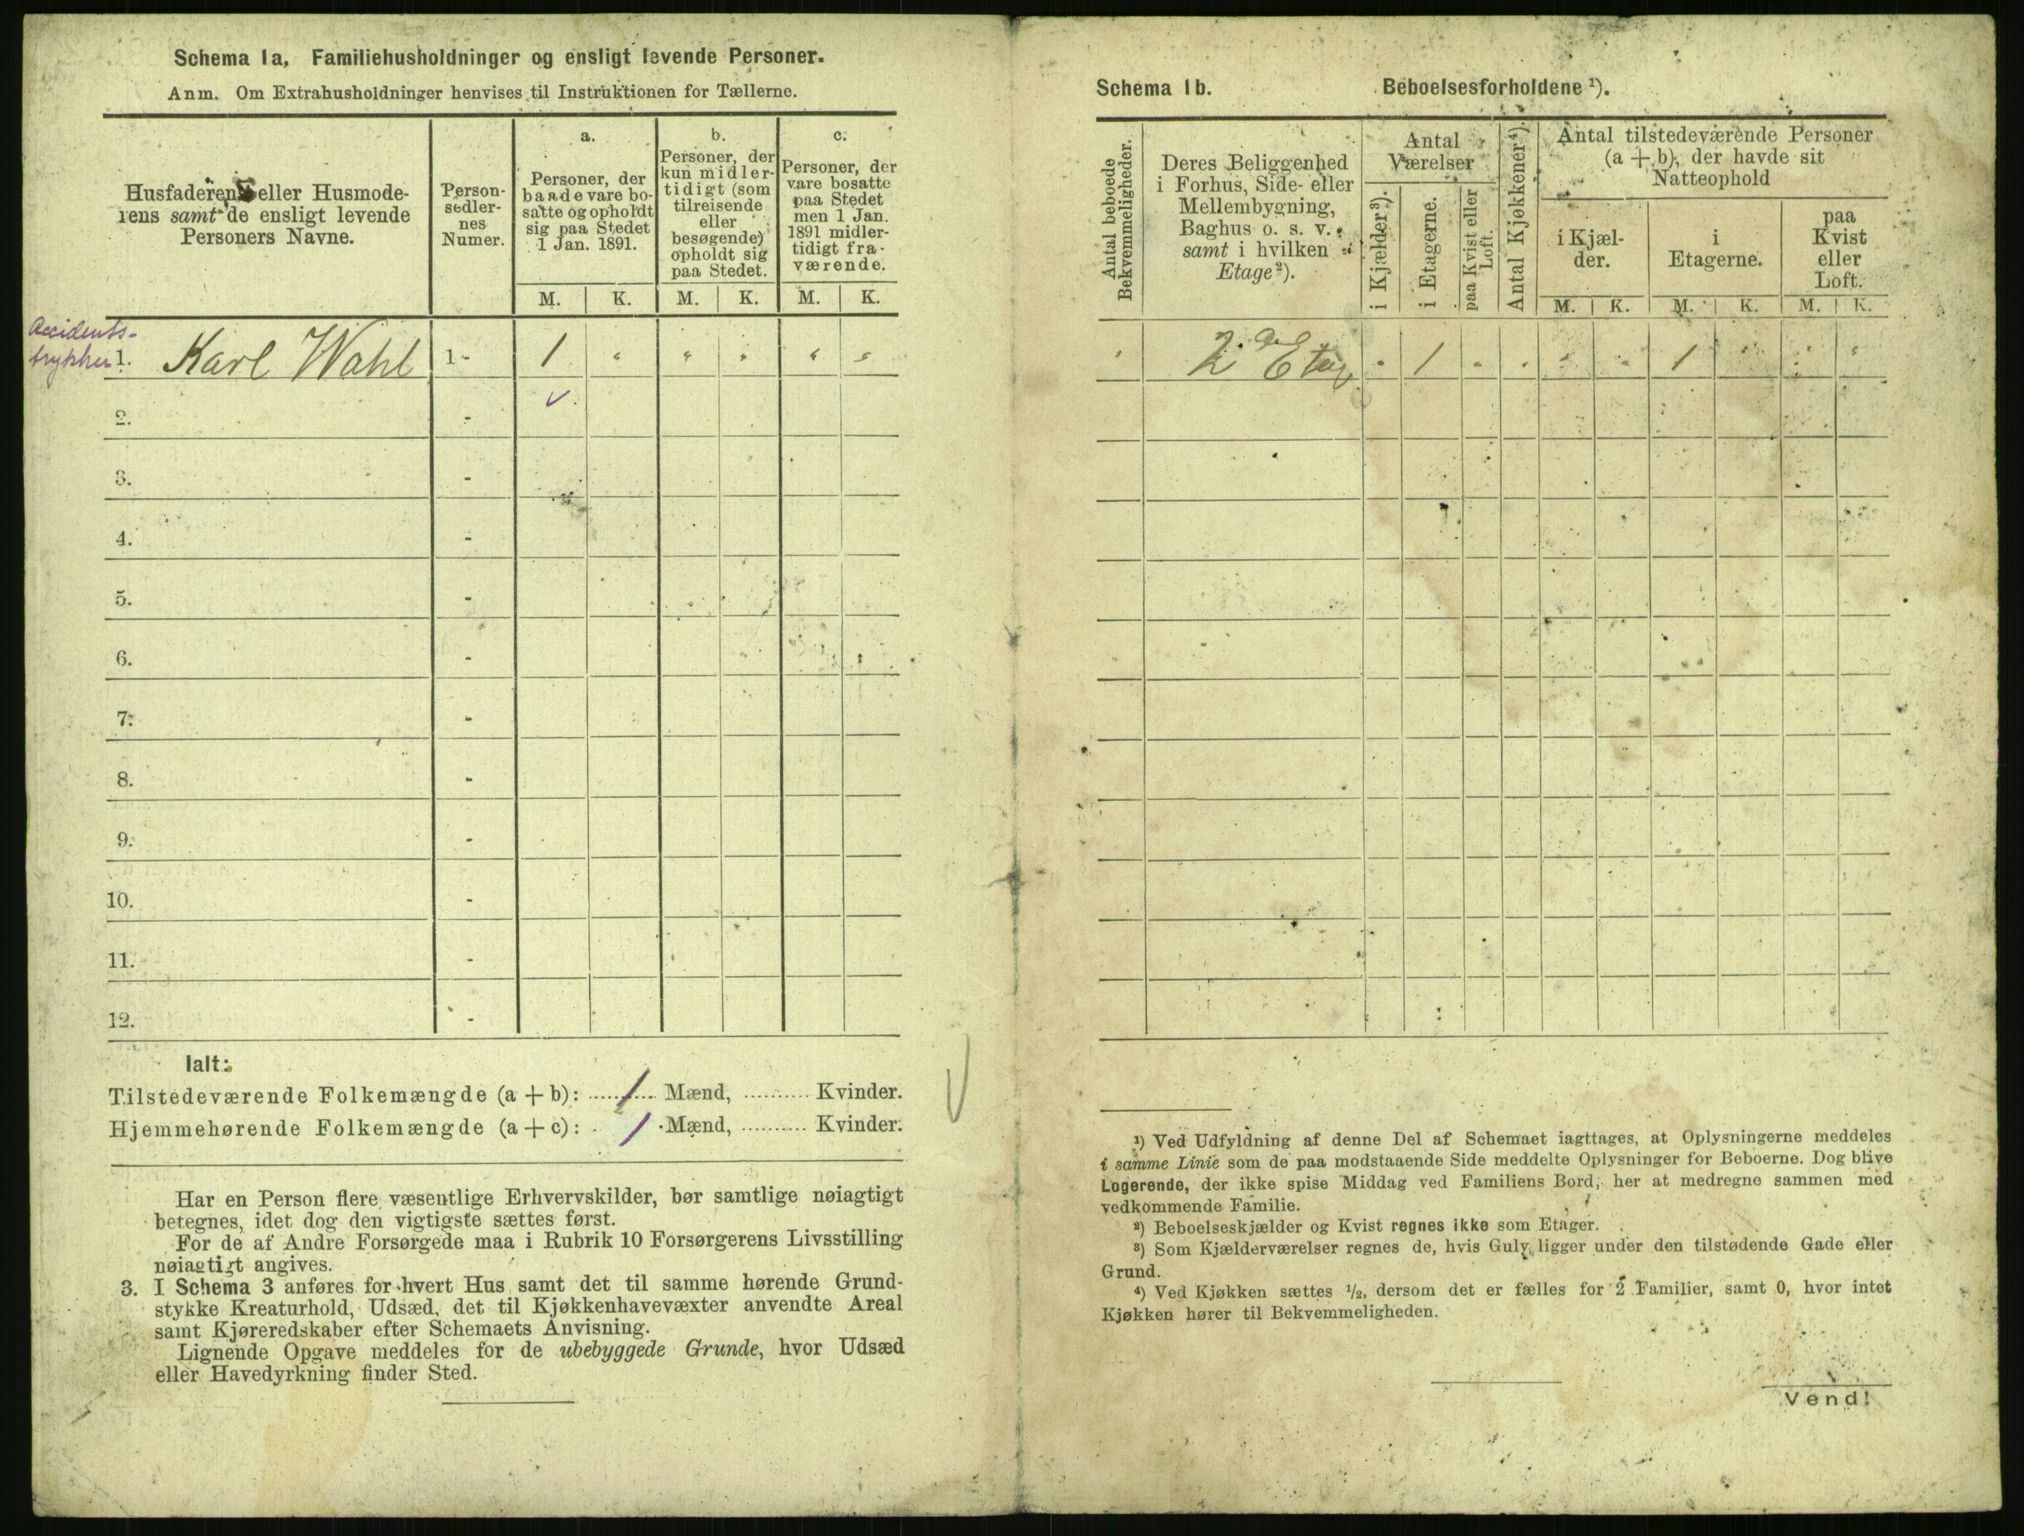 Schema 1a, Familiehusholdninger og ensligt levende Personer.
Anm. Om Extrahusholdninger henvises til Instruktionen for Tællerne.
Husfaderens eller Husmode-
rens samt de ensligt levende
Personers Navne.
Person-
sedler-
nes
Numer.
a.
Personer, der
baade vare bo-
satte og opholdt
sig paa Stedet
1 Jan. 1891.
b.
Personer, der
kun midler-
tidigt (som
tilreisende
eller
besøgende)
opholdt sig
paa Stedet.
c.
Personer, der
vare bosatte
paa Stedet
men 1 Jan.
1891 midler-
tidigt fra-
værende.
M. K. M. K. M. K.
Accidents-
trykker
1. Karl Wahl 1 - 1 " " " " "
2. -
3. -
4. -
5. -
6. -
7. -
8. -
9. -
10. -
11. -
12. -
Ialt:
Tilstedeværende Folkemængde (a + b): 1 Mænd, Kvinder.
Hjemmehørende Folkemængde (a + c): 1 Mænd, Kvinder.
Har en Person flere væsentlige Erhvervskilder, bør samtlige nøiagtigt
betegnes, idet dog den vigtigste sættes først.
For de af Andre Forsørgede maa i Rubrik 10 Forsørgerens Livsstilling
nøiagtigt angives.
3. I Schema 3 anføres for hvert Hus samt det til samme hørende Grund-
stykke Kreaturhold, Udsæd, det til Kjøkkenhavevæxter anvendte Areal
samt Kjøreredskaber efter Schemaets Anvisning.
Lignende Opgave meddeles for de ubebyggede Grunde, hvor Udsæd
eller Havedyrkning finder Sted.
Schema 1b. Beboelsesforholdene ¹).
Antal beboede
Bekvemmeligheder.
Deres Beliggenhed
i Forhus, Side- eller
Mellembygning,
Baghus o. s. v.
samt i hvilken
Etage²).
Antal
Værelser
i Kjælder³).
i Etagerne.
paa Kvist eller
Loft.
Antal Kjøkkener⁴).
Antal tilstedeværende Personer
(a + b), der havde sit
Natteophold
i Kjæl-
der.
i
Etagerne.
paa
Kvist
eller
Loft.
M. K. M. K. M. K.
" 2den Etage " 1 " " " " 1 " " "
¹) Ved Udfyldning af denne Del af Schemaet iagttages, at Oplysningerne meddeles
i samme Linie som de paa modstaaende Side meddelte Oplysninger for Beboerne. Dog blive
Logerende, der ikke spise Middag ved Familiens Bord, her at medregne sammen med
vedkommende Familie.
²) Beboelseskjælder og Kvist regnes ikke som Etager.
³) Som Kjælderværelser regnes de, hvis Gulv ligger under den tilstødende Gade eller
Grund.
⁴) Ved Kjøkken sættes ½, dersom det er fælles for 2 Familier, samt 0, hvor intet
Kjøkken hører til Bekvemmeligheden.
Vend!